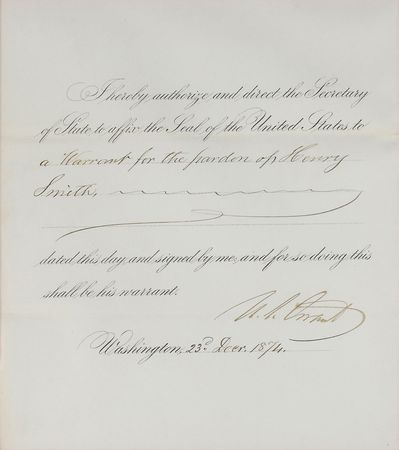 I hereby authorize and direct the Secretary
of State to affix the Seal of the United States to
a Warrant for the pardon of Henry
Smith,
dated this day and signed by me, and for so doing this
shall be his warrant.
U. S. Grant
Washington, 23d Decr. 1874.